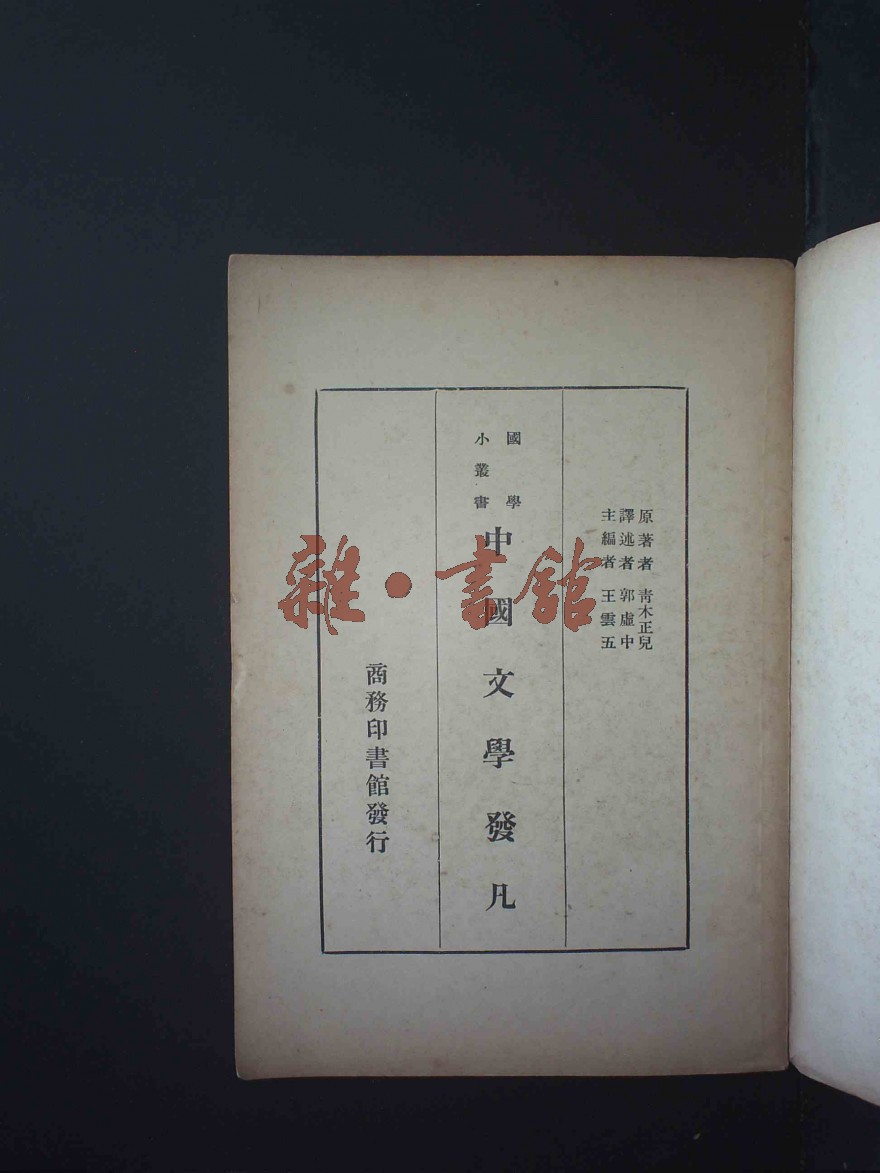 原著者 青木正兒
譯述者 郭虛中
主編者 王雲五
國學
小叢書
中國文學發凡
商務印書館發行
雜·書館